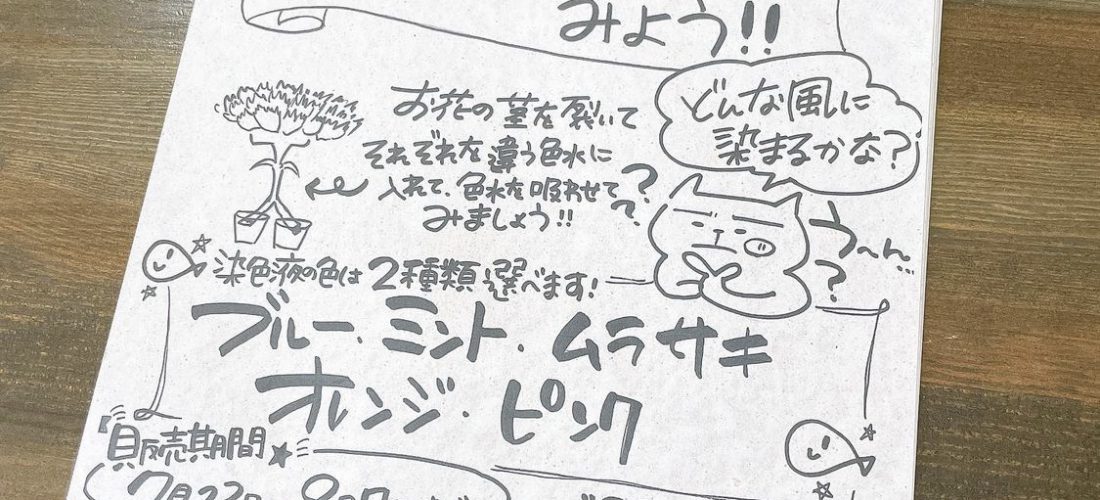 みよう!!
どんな風に
染まるかな?
お花の茎を裂いて
それぞれを違う色水に
入れて、色水を吸わせて
みましょう!!
??
う〜ん…
?
染色液の色は2種類選べます!
ブルー・ミント・ムラサキ
オレンジ・ピンク
販売期間